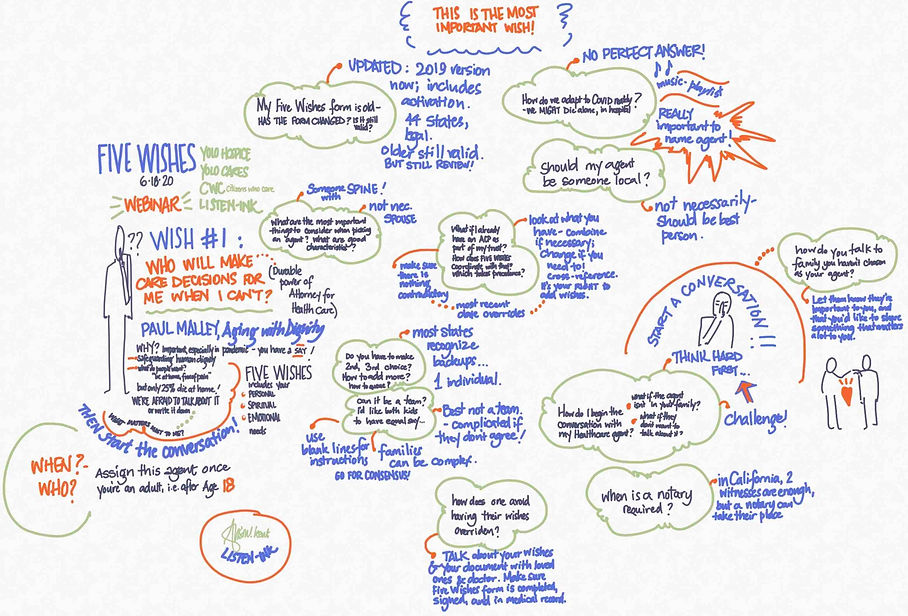 THIS IS THE MOST
IMPORTANT WISH!
FIVE WISHES
6·18·20
WEBINAR
YOLO HOSPICE
YOLO CARES
CWC citizens who care
LISTEN-INK
??
WISH #1:
WHO WILL MAKE
CARE DECISIONS FOR
ME WHEN I CAN'T?
(Durable
power of
Attorney for
Health Care)
PAUL MALLEY, Aging with Dignity
WHY? Important, especially in pandemic - you have a SAY!
safeguarding human dignity
what do people want?
"Die at home, free of pain"
but only 25% die at home!
WE'RE AFRAID TO TALK ABOUT IT
or write it down
WHAT MATTERS MOST TO ME?
THEN Start the conversation!
FIVE WISHES
includes your
PERSONAL
SPIRITUAL
EMOTIONAL
needs
WHEN?-
WHO?
Assign this agent once
you're an adult, i.e. after Age 18
LISTEN-INK
My Five Wishes form is old-
HAS THE FORM CHANGED? IS it still
valid?
UPDATED: 2019 version
now; includes
activation.
44 states,
legal.
older still valid.
BUT STILL REVIEW!
What are the most important
things to consider when picking
an agent? what are good
characteristics?
Someone
with SPINE!
not nec.
SPOUSE
What if I already
have an ACP as
part of my trust?
How does FIVE WISHES
Coordinate with that?
which takes precedence?
look at what you
have - combine
if necessary;
Change if you
need to!
cross-reference.
It's your RIGHT to
add wishes.
make sure
there is
nothing
contradictory
most recent
date overrides
Do you have to make
2nd, 3rd choice?
How to add more?
most states
recognize
backups...
1 individual.
can it be a team?
I'd like both kids
to have equal say...
Best not a team.
- complicated if
they don't agree!
use
blank lines for
instructions
GO FOR CONSENSUS!
families
can be complex.
how does one avoid
having their wishes
overriden?
TALK about your wishes
& your document with loved
ones & doctor. Make sure
Five Wishes form is completed,
signed, and in medical record.
How do we adapt to COVID reality?
-we MIGHT Die alone, in hospital
NO PERFECT ANSWER!
music-playlist
REALLY
important to
name agent!
Should my agent
be someone local?
not necessarily-
should be best
person.
how do you talk to
family you haven't chosen
as your agent?
Let them know they're
important to you, and
that you'd like to share
something that matters
a lot to you!
START A CONVERSATION!!!
THINK HARD
FIRST...
challenge!
How do I begin the
conversation with
my Healthcare agent?
what if the agent
isn't in your family?
what if they
don't want to
talk about it?
when is a notary
required?
in California, 2
witnesses are enough,
but a notary can
take their place